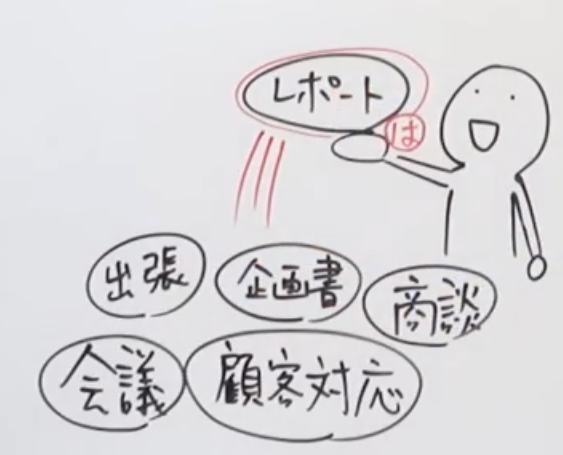 レポート
は
出張
企画書
商談
会議
顧客対応